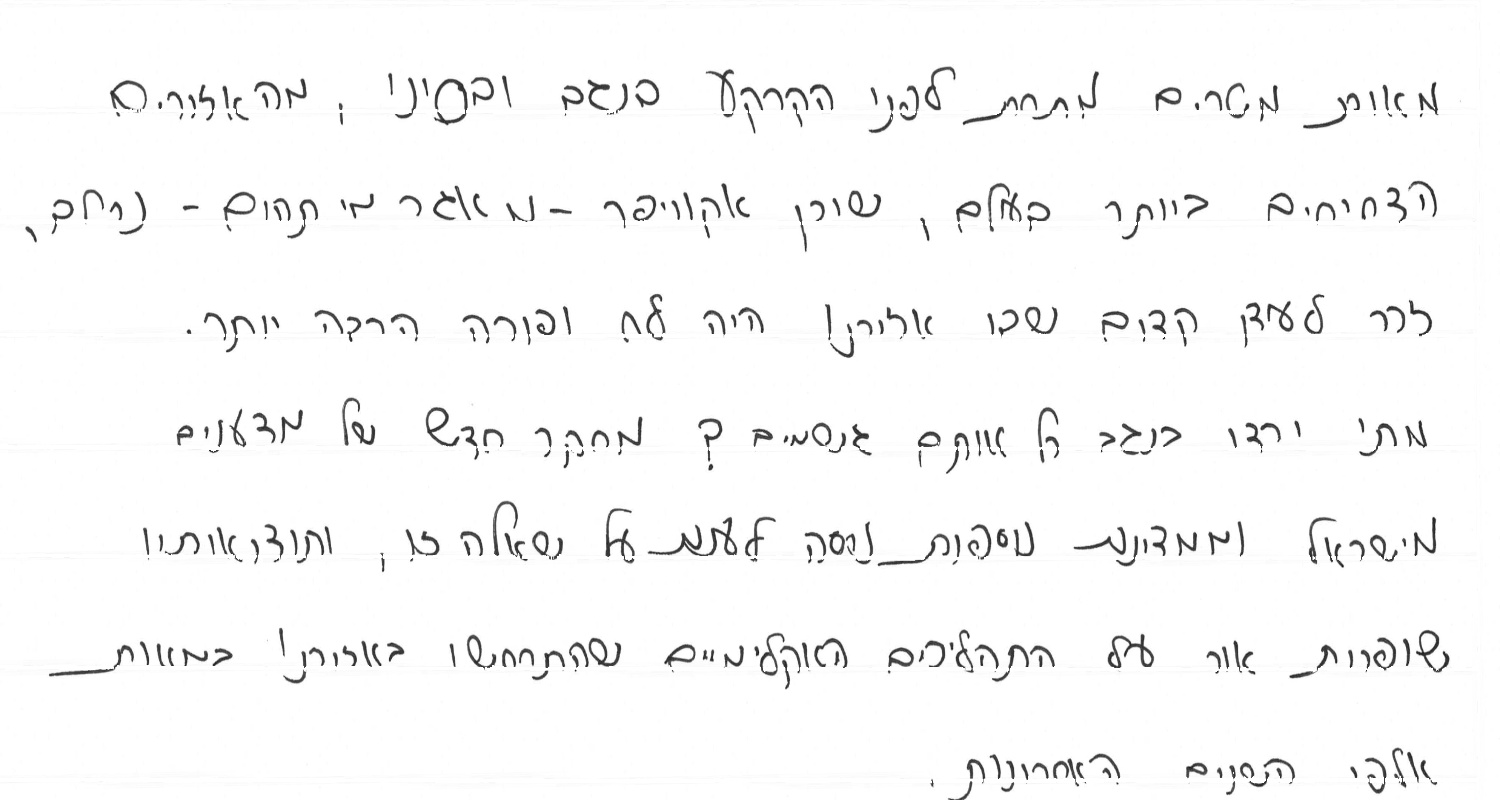 מאות מטרים מתחת לפני הקרקע בנגב ובסיני, מהאזורים
הצחיחים ביותר בעולם, שוכן אקוויפר - מאגר מי תהום - נרחב,
זכר לעידן קדום שבו אזורנו היה לח ופורה הרבה יותר.
מתי ירדו בנגב כל אותם גשמים? מחקר חדש של מדענים
מישראל וממדינות נוספות ניסה לענות על שאלה זו, ותוצאותיו
שופכות אור על התהליכים האקלימיים שהתרחשו באזורנו במאות
אלפי השנים האחרונות.